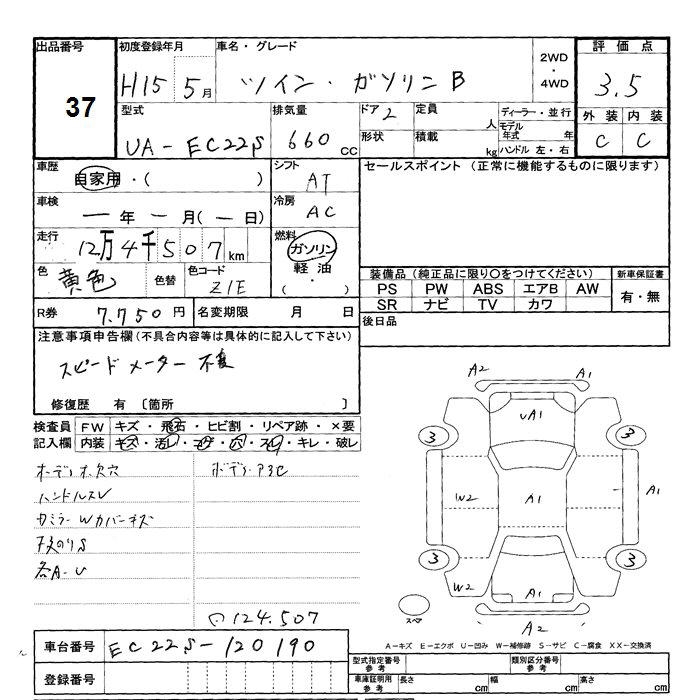 出品番号 初度登録年月 車名・グレード 2WD・4WD 評価点
37 H15 5月 ツイン・ガソリンB 3.5
型式 排気量 ドア 2 定員 人 ディーラー・並行 外装 内装
UA-EC22S 660 CC 形状 積載 kg モデル年式 年 C C
ハンドル 左・右
車歴 自家用・( ) シフト AT セールスポイント (正常に機能するものに限ります)
車検 一年 一月(一日) 冷房 AC
走行 12万4千507km 燃料 ガソリン 軽油・( )
色 黄色 色替 色コード Z1E
装備品(純正品に限り○をつけてください) 新車保証書
PS PW ABS エアB AW 有・無
SR ナビ TV カワ
R券 7,750円 名変期限 月 日 後日品
注意事項申告欄(不具合内容等は具体的に記入して下さい)
スピードメーター不良
修復歴 有 〔箇所 〕
検査員 FW キズ・飛石・ヒビ割・リペア跡・×要
記入欄 内装 キズ・汚レ・コゲ・穴・スレ・キレ・破レ
オーディオ欠穴 ボデーP3C
ハンドルスレ
天のりS
各A-U
124.507
A2 A1
UA1
3 3
W2 A1 A1
3 3
W2 A1
スペア A2
A-キズ E-エクボ U-凹み W-補修跡 S-サビ C-腐食 XX-交換済
車台番号 EC22S-120190
型式指定番号 参考 類別区分番号 参考
登録番号 車庫証明用 参考 長さ cm 幅 cm 高さ cm